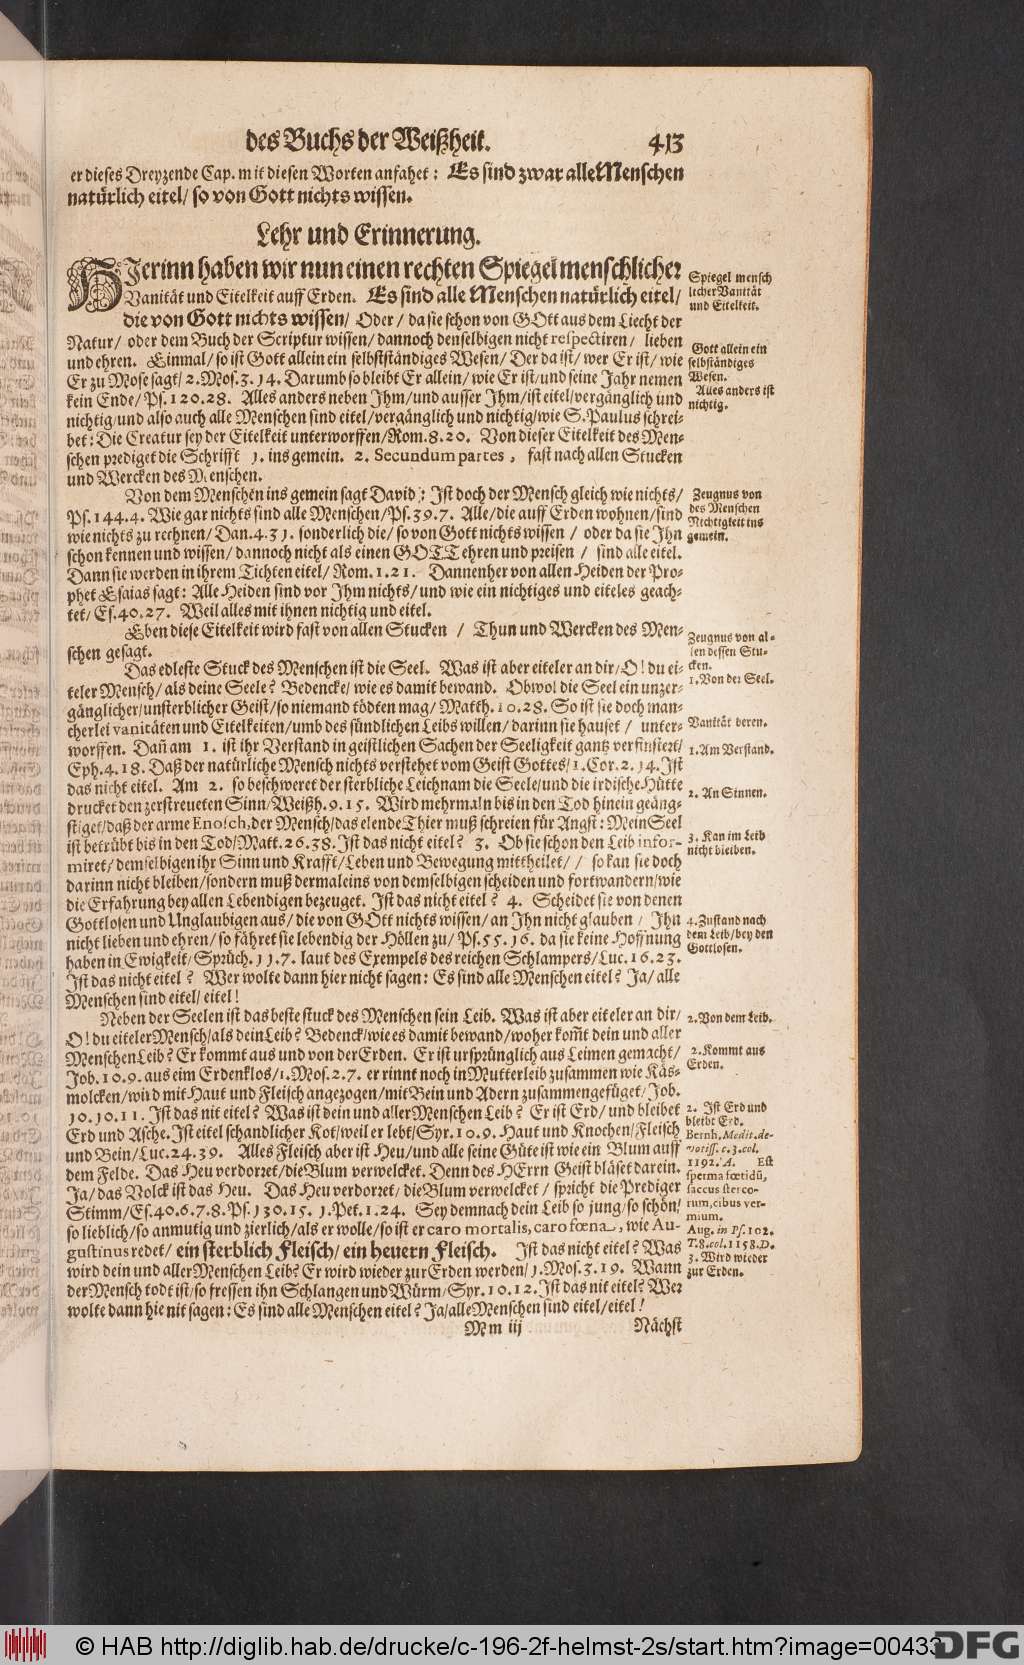 des Buchs der Weißheit. 413
er dieses Dreyzende Cap. mit diesen Worten anfahet: Es sind zwar alle Menschen
natürlich eitel/ so von Gott nichts wissen.
Lehr und Erinnerung.
HIerinn haben wir nun einen rechten Spiegel menschlicher
Vanität und Eitelkeit auff Erden. Es sind alle Menschen natürlich eitel/
die von Gott nichts wissen/ Oder/ da sie schon von GOtt aus dem Liecht der
Natur/ oder dem Buch der Scriptur wissen/ dannoch denselbigen nicht respectiren/ lieben
und ehren. Einmal/ so ist Gott allein ein selbstständiges Wesen/ Der da ist/ wer Er ist/ wie
Er zu Mose sagt/ 2. Mos. 3. 14. Darumb so bleibt Er allein/ wie Er ist/ und seine Jahr nemen
kein Ende/ Ps. 120. 28. Alles anders neben Ihm/ und ausser Ihm/ ist eitel/ vergänglich und
nichtig/ und also auch alle Menschen sind eitel/ vergänglich und nichtig/ wie S. Paulus schrei-
bet: Die Creatur sey der Eitelkeit unterworffen/ Rom. 8. 20. Von dieser Eitelkeit des Men-
schen prediget die Schrifft 1. ins gemein. 2. Secundum partes, fast nach allen Stucken
und Wercken des Menschen.
Von dem Menschen ins gemein sagt David: Ist doch der Mensch gleich wie nichts/
Ps. 144. 4. Wie gar nichts sind alle Menschen/ Ps. 39. 7. Alle/ die auff Erden wohnen/ sind
wie nichts zu rechnen/ Dan. 4. 31. sonderlich die/ so von Gott nichts wissen/ oder da sie Ihn
schon kennen und wissen/ dannoch nicht als einen GOTT ehren und preisen/ sind alle eitel.
Dann sie werden in ihrem Tichten eitel/ Rom. 1. 21. Dannenher von allen Heiden der Pro-
phet Esaias sagt: Alle Heiden sind vor Ihm nichts/ und wie ein nichtiges und eiteles geach-
tet/ Es. 40. 27. Weil alles mit ihnen nichtig und eitel.
Eben diese Eitelkeit wird fast von allen Stucken/ Thun und Wercken des Men-
schen gesagt.
Das edleste Stuck des Menschen ist die Seel. Was ist aber eiteler an dir/ O! du ei-
teler Mensch/ als deine Seele? Bedencke/ wie es damit bewand. Obwol die Seel ein unzer-
gänglicher/ unsterblicher Geist/ so niemand tödten mag/ Matth. 10. 28. So ist sie doch man-
cherlei vanitäten und Eitelkeiten/ umb des sündlichen Leibs willen/ darinn sie hauset/ unter-
worffen. Dañ am 1. ist ihr Verstand in geistlichen Sachen der Seeligkeit gantz verfinstert/
Eph. 4. 18. Daß der natürliche Mensch nichts verstehet vom Geist Gottes/ 1. Cor. 2. 14. Ist
das nicht eitel. Am 2. so beschweret der sterbliche Leichnam die Seele/ und die irdische Hütte
drucket den zerstreueten Sinn/ Weißh. 9. 15. Wird mehrmaln bis in den Tod hinein geäng-
stiget/ daß der arme Enosch, der Mensch/ das elende Thier muß schreien für Angst: Mein Seel
ist betrübt bis in den Tod/ Matt. 26. 38. Ist das nicht eitel? 3. Ob sie schon den Leib infor-
miret/ demselbigen ihr Sinn und Krafft/ Leben und Bewegung mittheilet// so kan sie doch
darinn nicht bleiben/ sondern muß dermaleins von demselbigen scheiden und fortwandern/ wie
die Erfahrung bey allen Lebendigen bezeuget. Ist das nicht eitel? 4. Scheidet sie von denen
Gottlosen und Unglaubigen aus/ die von GOtt nichts wissen/ an Ihn nicht glauben/ Ihn
nicht lieben und ehren/ so fähret sie lebendig der Höllen zu/ Ps. 55. 16. da sie keine Hoffnung
haben in Ewigkeit/ Sprüch. 11. 7. laut des Exempels des reichen Schlampers/ Luc. 16. 23.
Ist das nicht eitel? Wer wolte dann hier nicht sagen: Es sind alle Menschen eitel? Ja/ alle
Menschen sind eitel/ eitel!
Neben der Seelen ist das beste stuck des Menschen sein Leib. Was ist aber eiteler an dir/
O! du eiteler Mensch/ als dein Leib? Bedenck/ wie es damit bewand/ woher kom̃t dein und aller
Menschen Leib? Er kommt aus und von der Erden. Er ist ursprünglich aus Leimen gemacht/
Job. 10. 9. aus eim Erdenklos/ 1. Mos. 2. 7. er rinnt noch in Mutterleib zusammen wie Käs-
molcken/ wird mit Haut und Fleisch angezogen/ mit Bein und Adern zusammengefüget/ Job.
10. 10. 11. Ist das nit eitel? Was ist dein und aller Menschen Leib? Er ist Erd/ und bleibet
Erd und Asche. Ist eitel schandlicher Kot/ weil er lebt/ Syr. 10. 9. Haut und Knochen/ Fleisch
und Bein/ Luc. 24. 39. Alles Fleisch aber ist Heu/ und alle seine Güte ist wie ein Blum auff
dem Felde. Das Heu verdorret/ die Blum verwelcket. Denn des HErrn Geist bläset darein.
Ja/ das Volck ist das Heu. Das Heu verdorret/ die Blum verwelcket/ spricht die Prediger
Stimm/ Es. 40. 6. 7. 8. Ps. 130. 15. 1. Pet. 1. 24. Sey demnach dein Leib so jung/ so schön/
so lieblich/ so anmutig und zierlich/ als er wolle/ so ist er caro mortalis, caro fœna, wie Au-
gustinus redet/ ein sterblich Fleisch/ ein heuern Fleisch. Ist das nicht eitel? Was
wird dein und aller Menschen Leib? Er wird wieder zur Erden werden/ 1. Mos. 3. 19. Wann
der Mensch todt ist/ so fressen ihn Schlangen und Würm/ Syr. 10. 12. Ist das nit eitel? Wer
wolte dann hie nit sagen: Es sind alle Menschen eitel? Ja/ alle Menschen sind eitel/ eitel!
Mm iij Nächst
Spiegel mensch
licher Vanität
und Eitelkeit.
Gott allein ein
selbständiges
Wesen.
Alles anders ist
nichtig.
Zeugnus von
des Menschen
Nichtigkeit ins
gemein.
Zeugnus von al-
len dessen Stu-
cken.
1. Von der Seel.
Vanität deren.
1. Am Verstand.
2. An Sinnen.
3. Kan im Leib
nicht bleiben.
4. Zustand nach
dem Leib/ bey den
Gottlosen.
2. Von dem Leib.
2. Kommt aus
Erden.
2. Ist Erd und
bleibt Erd.
Bernh. Medit. de-
votiss. c. 3. col.
1192. A. Est
sperma fœtidũ,
saccus sterco-
rum, cibus ver-
mium.
Aug. in Ps. 102.
T. 8. col. 1158. D.
3. Wird wieder
zur Erden.
© HAB http://diglib.hab.de/drucke/c-196-2f-helmst-2s/start.htm?image=00433
DFG